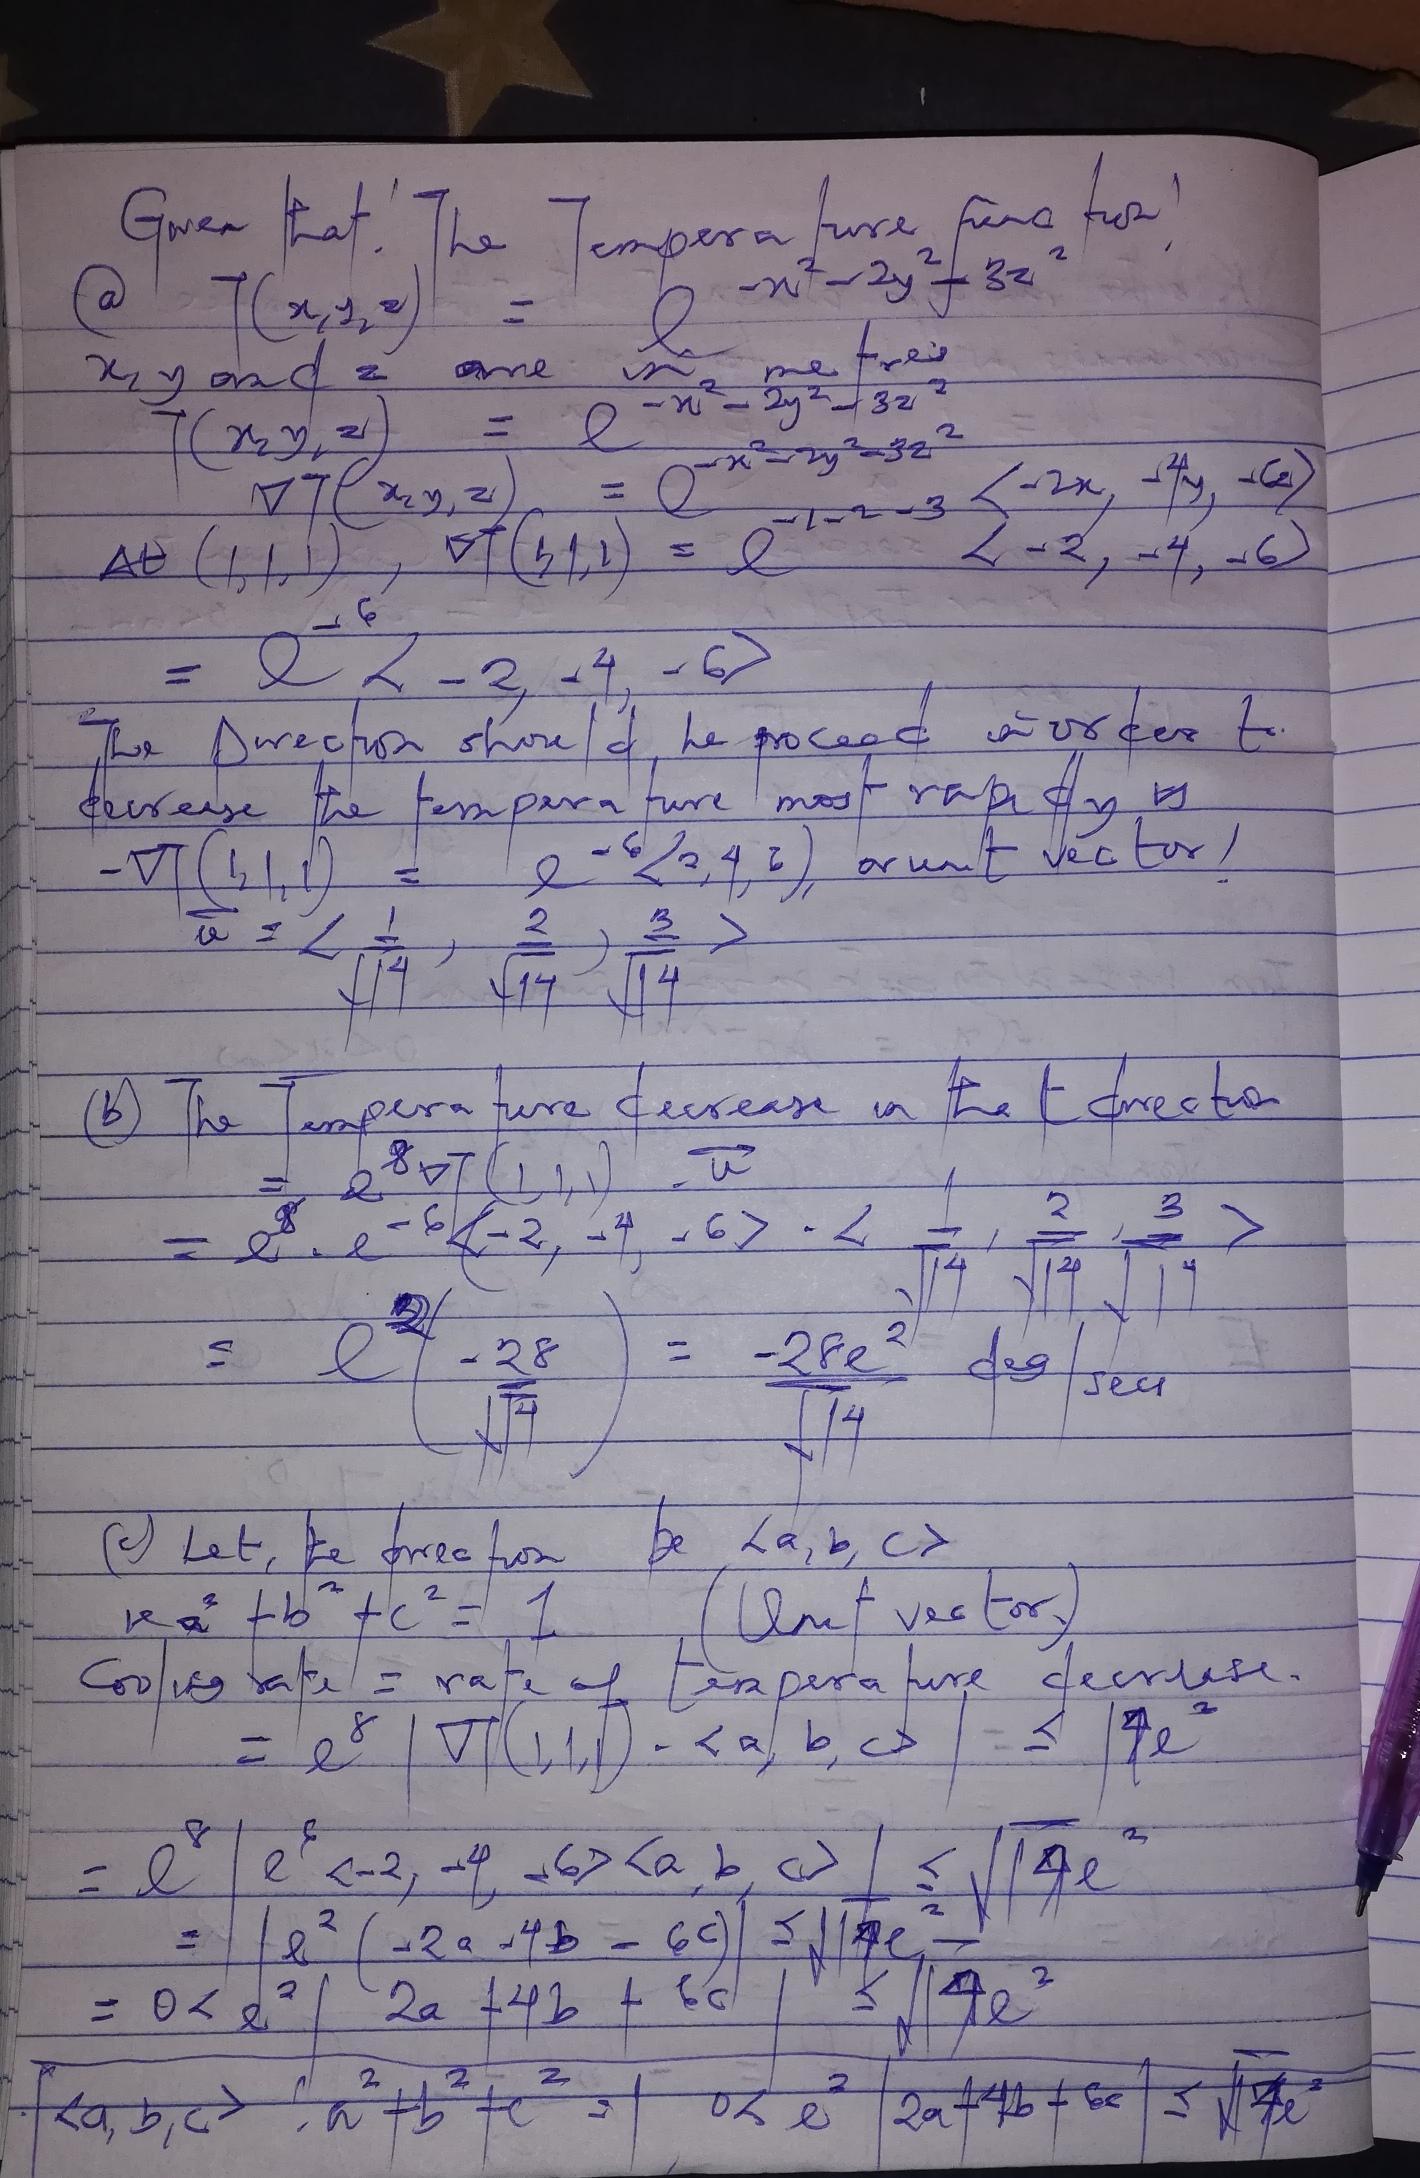 Given that! The Temperature function!
(a) T(x,y,z) = e^{-x²-2y²-3z²}
x, y and z are in metres
T(x,y,z) = e^{-x²-2y²-3z²}
∇T(x,y,z) = e^{-x²-2y²-3z²} <-2x, -4y, -6z>
At (1,1,1), ∇T(1,1,1) = e^{-1-2-3} <-2, -4, -6>
= e^{-6} <-2, -4, -6>
The Direction should be proceed in order to
decrease the temperature most rapidly is
-∇T(1,1,1) = e^{-6}<2,4,6>, or unit vector!
u = <1/√14, 2/√14, 3/√14>
(b) The Temperature decrease in the t direction
= e⁸∇T(1,1,1) . u
= e⁸ . e^{-6}<-2, -4, -6> . <1/√14, 2/√14, 3/√14>
= e²(-28/√14) = -28e²/√14 deg/sec
(c) Let, the direction be <a, b, c>
a² + b² + c² = 1 (Unit vector)
Cooling rate = rate of temperature decrease.
= e⁸ |∇T(1,1,1) . <a, b, c>| ≤ 14e²
= e⁸ |e⁶ <-2, -4, -6> <a, b, c>| ≤ √14e²
= |e² (-2a -4b - 6c)| ≤ √14e²
= 0 < e² |2a + 4b + 6c| ≤ √14e²
<a, b, c> : a² + b² + c² = 1 0 < e² |2a + 4b + 6c| ≤ √14e²